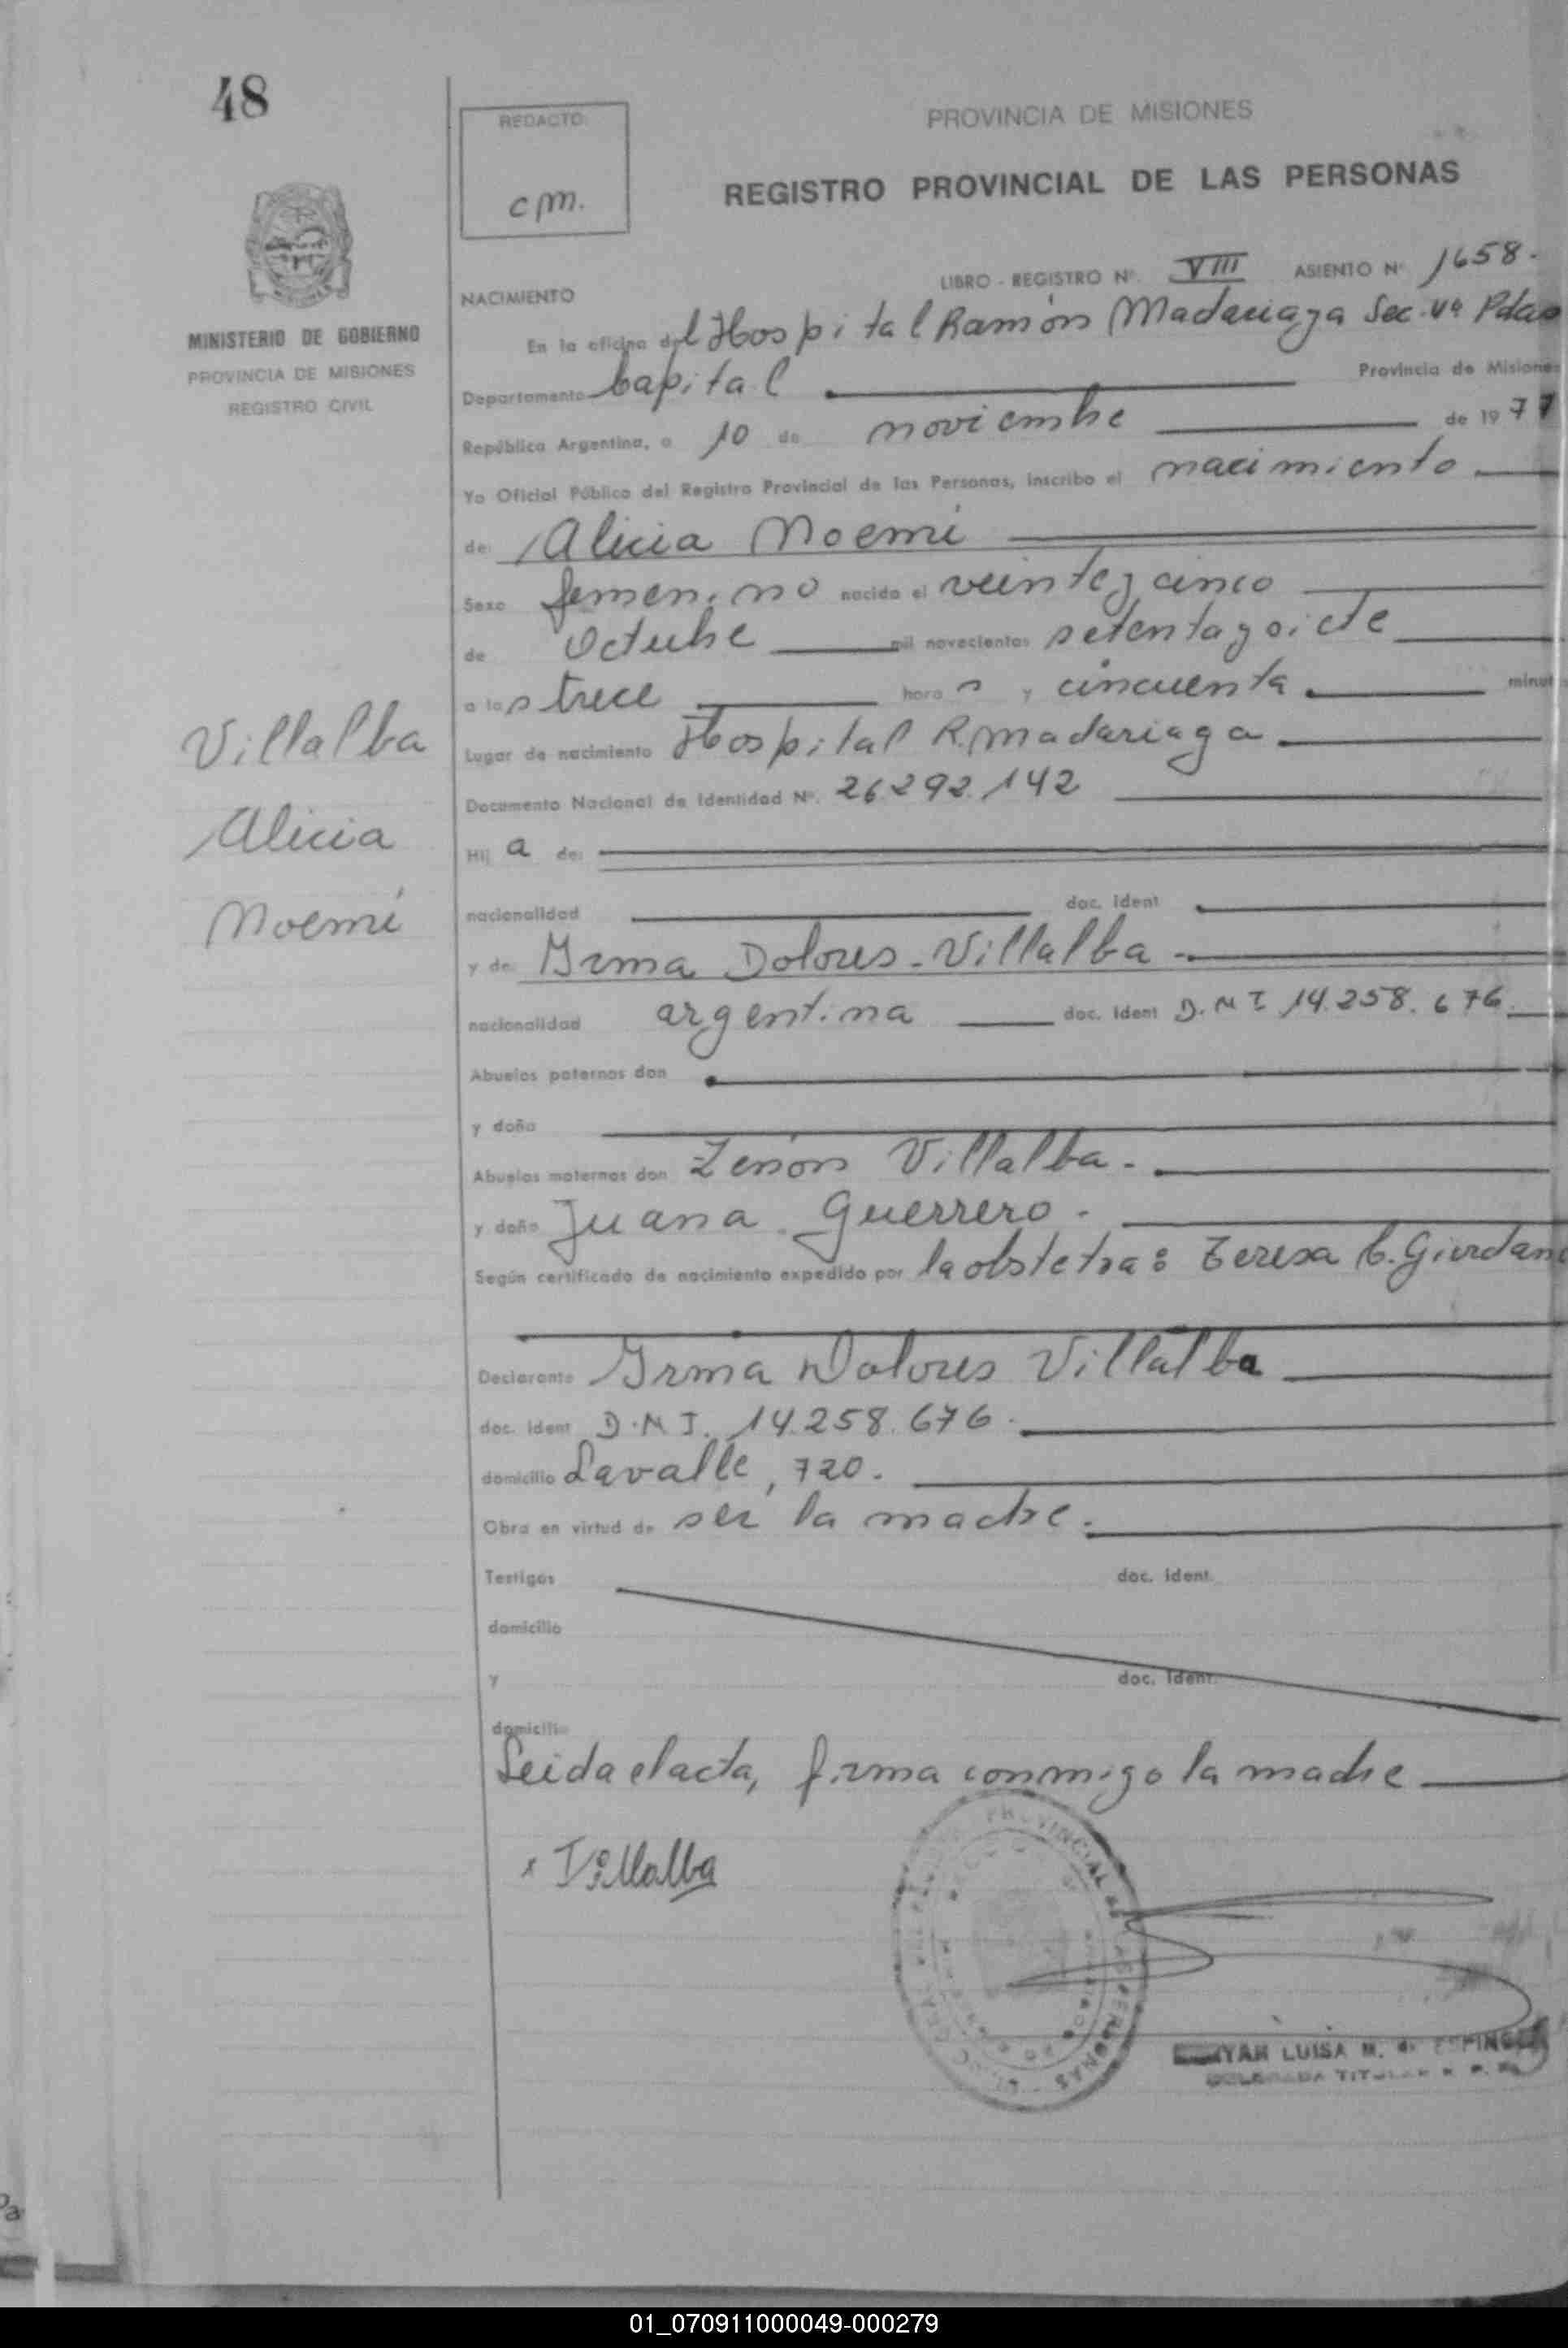 48
REDACTO
cm.
PROVINCIA DE MISIONES
REGISTRO PROVINCIAL DE LAS PERSONAS
LIBRO - REGISTRO Nº. VIII ASIENTO Nº 1658.
MINISTERIO DE GOBIERNO
PROVINCIA DE MISIONES
REGISTRO CIVIL
NACIMIENTO
En la oficina del Hospital Ramón Madariaga Sec. Vª Pdas
Departamento Capital Provincia de Misiones
República Argentina, a 10 de noviembre de 1977
Yo Oficial Público del Registro Provincial de las Personas, inscribo el nacimiento
de: Alicia Noemí
Sexo femenino nacido el veinteycinco
de Octubre mil novecientos setentaysiete
a las trece hora s y cincuenta minut
Lugar de nacimiento Hospital R. Madariaga
Documento Nacional de Identidad Nº. 26.292.142
Hij a de:
nacionalidad doc. ident
y de Irma Dolores Villalba
nacionalidad argentina doc. ident D.N.I. 14.258.676.
Abuelos paternos don
y doña
Abuelos maternos don Zenón Villalba.
y doña Juana Guerrero.
Según certificado de nacimiento expedido por la obstetra: Teresa C. Giordano
Declarante Irma Dolores Villalba
doc. ident D.N.I. 14.258.676.
domicilio Lavalle, 720.
Obra en virtud de ser la madre.
Testigos doc. ident.
domicilio
y doc. ident.
domicilio
Leida el acta, firma conmigo la madre
Villalba
Alicia
Noemí
x Villalba
PROVINCIAL DE LAS PERSONAS
LUISA M. de ESPINO
DELEGADA TITULAR
01_070911000049-000279